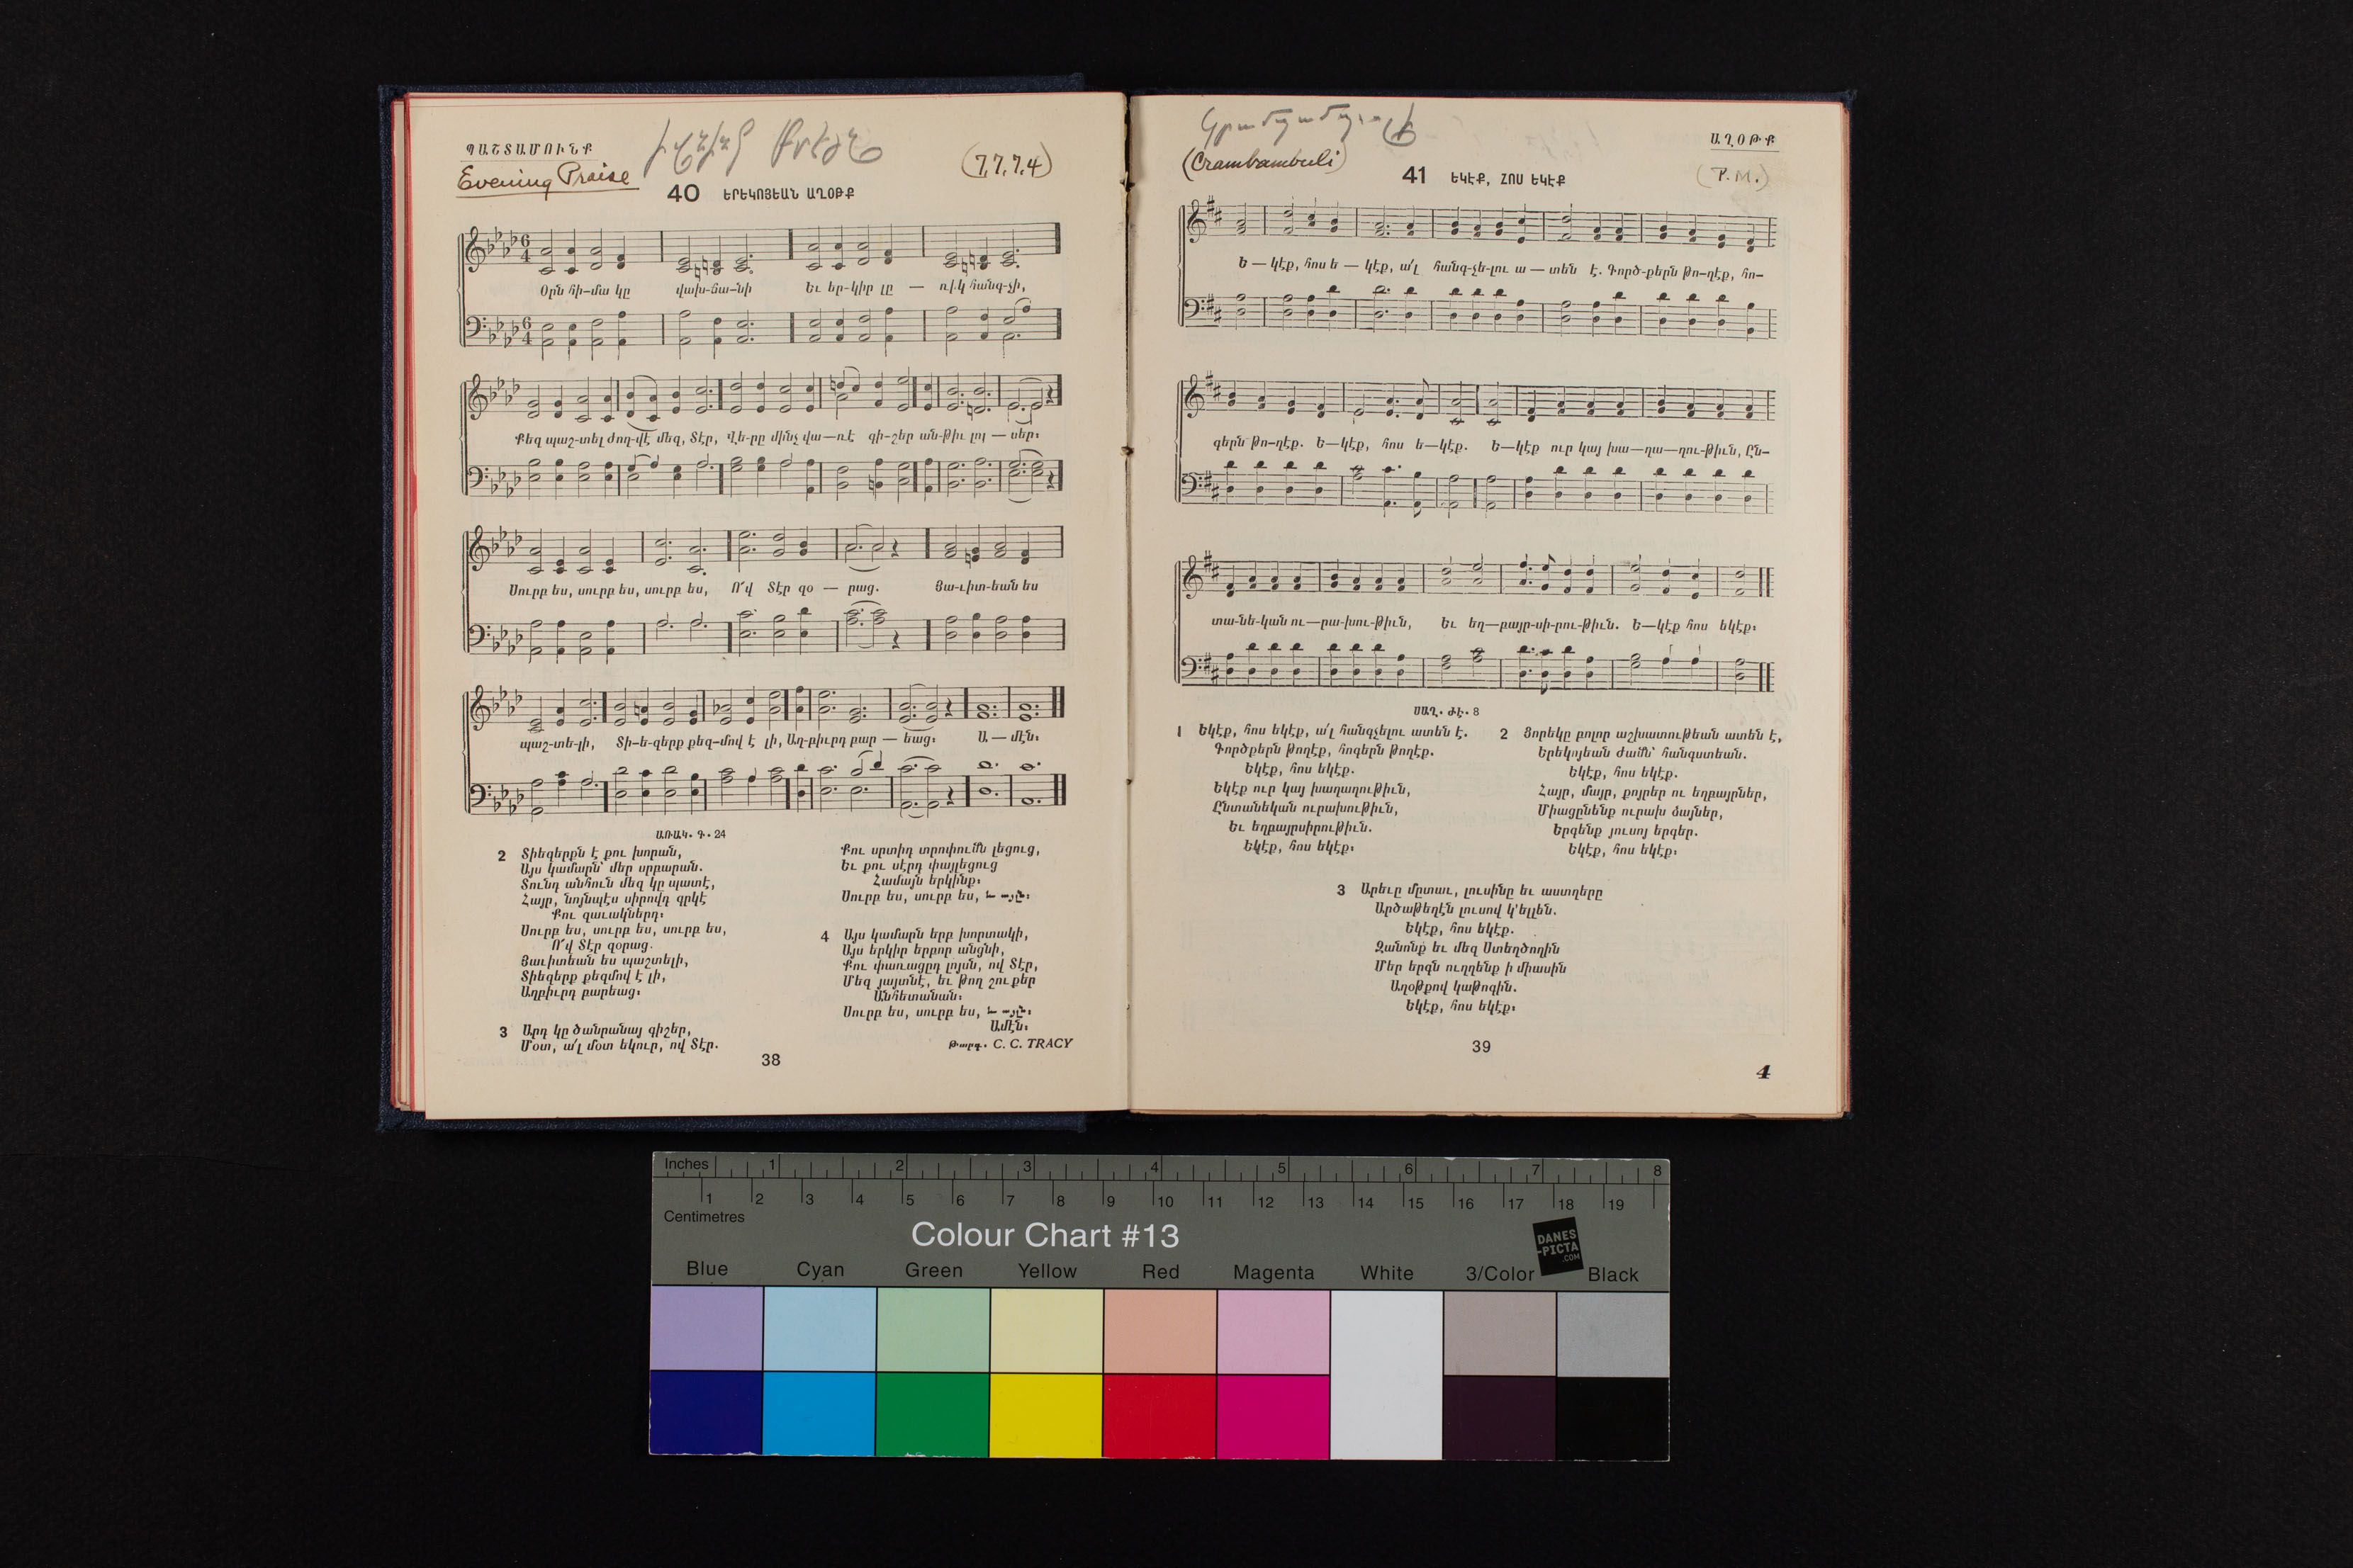 ՊԱՇՏԱՄՈՒՆՔ
Evening Praise
(7,7,7,4)
40 ԵՐԵԿՈՅԵԱՆ ԱՂՕԹՔ
Օրն հի-մա կը վախ-ճա-նի Եւ եր-կիր լը — ռիկ հանգ-չի,
Քեզ պաշ-տել ժող-վէ մեզ, Տէր, Վե-րը մինչ վա—ռէ գի-շեր ան-թիւ լոյ — սեր։
Սուրբ ես, սուրբ ես, սուրբ ես, Ո՜վ Տէր զօ — րաց. Յա-ւիտ-եան ես
պաշ-տե-լի, Տի-ե-զերք քեզ-մով է լի, Աղ-բիւրդ բար — եաց։ Ա — մէն։
ԱՌԱԿ. Գ. 24
2 Տիեզերքն է քու խորան,
Այս կամարն՝ մեր սրբարան.
Տունդ անհուն մեզ կը պատէ,
Հայր, նոյնպէս սիրովդ գրկէ
Քու զաւակներդ։
Սուրբ ես, սուրբ ես, սուրբ ես,
Ո՜վ Տէր զօրաց.
Յաւիտեան ես պաշտելի,
Տիեզերք քեզմով է լի,
Աղբիւրդ բարեաց։
3 Արդ կը ծանրանայ գիշեր,
Մօտ, ա՛լ մօտ եկուր, ով Տէր.
Քու սրտիդ տրոփումն լեցուց,
Եւ քու սէրդ փայլեցուց
Համայն երկինք։
Սուրբ ես, սուրբ ես, եւ այլն։
4 Այս կամարն երբ խորտակի,
Այս երկիր երբոր անցնի,
Քու փառացըդ լոյսն, ով Տէր,
Մեզ յայտնէ, եւ թող շուքեր
Անհետանան։
Սուրբ ես, սուրբ ես, եւ այլն։
Ամէն։
Թարգ. C. C. TRACY
38
(Crambambuli)
ԱՂՕԹՔ
41 ԵԿԷՔ, ՀՈՍ ԵԿԷՔ
(P. M.)
Ե — կէք, հոս ե — կէք, ա՛լ հանգ-չե-լու ա — տեն է. Գործ-քերն թո-ղէք, հո-
գերն թո-ղէք. Ե—կէք, հոս ե—կէք. Ե—կէք ուր կայ խա—ղա—ղու-թիւն, Ըն-
տա-նե-կան ու—րա-խու-թիւն, Եւ եղ—բայր-սի-րու-թիւն. Ե—կէք հոս եկէք։
ՍԱՂ. ԺԷ. 8
1 Եկէք, հոս եկէք, ա՛լ հանգչելու ատեն է.
Գործքերն թողէք, հոգերն թողէք.
Եկէք, հոս եկէք.
Եկէք ուր կայ խաղաղութիւն,
Ընտանեկան ուրախութիւն,
Եւ եղբայրսիրութիւն.
Եկէք, հոս եկէք։
2 Ցորեկը բոլոր աշխատութեան ատեն է,
Երեկոյեան ժամն՝ հանգստեան.
Եկէք, հոս եկէք.
Հայր, մայր, քոյրեր ու եղբայրներ,
Միացընենք ուրախ ձայներ,
Երգենք յուսոյ երգեր.
Եկէք, հոս եկէք։
3 Արեւը մըտաւ, լուսինը եւ աստղերը
Արծաթեղէն լուսով կ՚ելլեն.
Եկէք, հոս եկէք.
Զանոնք եւ մեզ Ստեղծողին
Մեր երգն ուղղենք ի միասին
Աղօթքով կաթոգին.
Եկէք, հոս եկէք։
39
4
Inches 1 2 3 4 5 6 7 8
1 2 3 4 5 6 7 8 9 10 11 12 13 14 15 16 17 18 19
Centimetres
Colour Chart #13
DANES
-PICTA
.COM
Blue Cyan Green Yellow Red Magenta White 3/Color Black